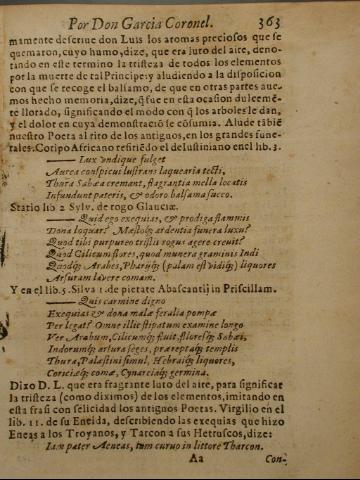 Por Don Garcia Coronel. 363
mamente descriue don Luis los aromas preciosos que se
quemaron, cuyo humo, dize, que era luto del aire, deno-
tando en este termino la tristeza de todos los elementos
por la muerte de tal Principe: y aludiendo a la disposicion
con que se recoge el balsamo, de que en otras partes aue-
mos hecho memoria, dize, q̃ fue en esta ocasion dulcemẽ-
te llorado, significando el modo con q̃ los arboles le dan,
y el dolor en cuya demonstraciõ se cõsumia. Alude tãbiẽ
nuestro Poeta al rito de los antiguos, en los grandes fune-
rales. Coripo Africano refiriẽdo el de Iustiniano en el lib. 3.
Lux vndique fulget
Aurea conspicui lustrans laquearia tecti,
Thura Sabæa cremant, flagrantia mella locatis
Infundunt pateris, & odoro balsama succo.
Statio lib 2 Sylv. de rogo Glauciæ.
Quid ego exequias, & prodiga flammis
Dona loquar? Mæstoq́; ardentia funera luxu?
Quod tibi purpureo tristis rogus agere creuit?
Quod Cilicum flores, quod munera graminis Indi
Quodq́; Arabes, Pharijq́; (palam est vidiq́;) liquores
Arsuram lauere comam.
Y en el lib. 5. Silua 1. de pietate Abascantij in Priscillam.
Quis carmine digno
Exequias & dona malæ feralia pompæ
Per legat? Omne illic stipatum examine longo
Ver Arabum, Cilicumq́; fluit, floresq́; Sabæi,
Indorumq́; arsura seges, præreptaq́; templis
Thura, Palæstini simul, Hebraiq́; liquores,
Coriciæq́; comæ, Cynareiaq́; germina.
Dixo D. L. que era fragrante luto del aire, para significar
la tristeza (como diximos) de los elementos, imitando en
esta frasi con felicidad los antiguos Poetas. Virgilio en el
lib. 11. de su Eneida, describiendo las exequias que hizo
Eneas a los Troyanos, y Tarcon a sus Hetruscos, dize:
Iam pater Aeneas, tum curuo in littore Tharcon.
Aa Con-